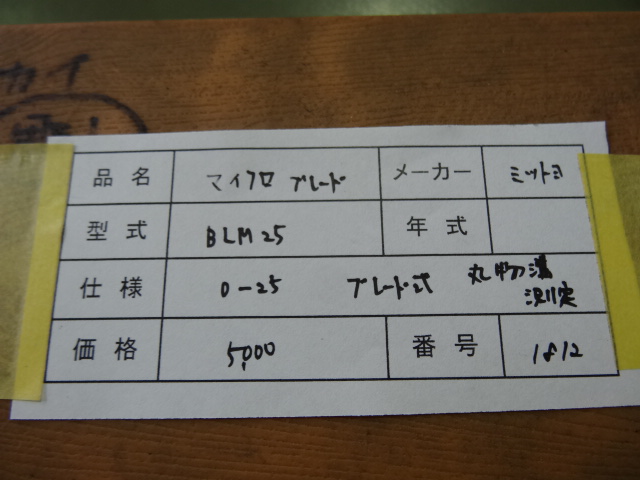 カイ
品名 マイクロ ブレード メーカー ミツトヨ
型式 BLM25 年式
仕様 0-25 ブレード式 丸物溝
測定
価格 5,000 番号 1812